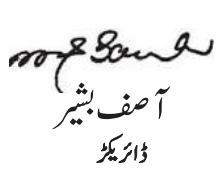 آصف بشیر
ڈائریکٹر